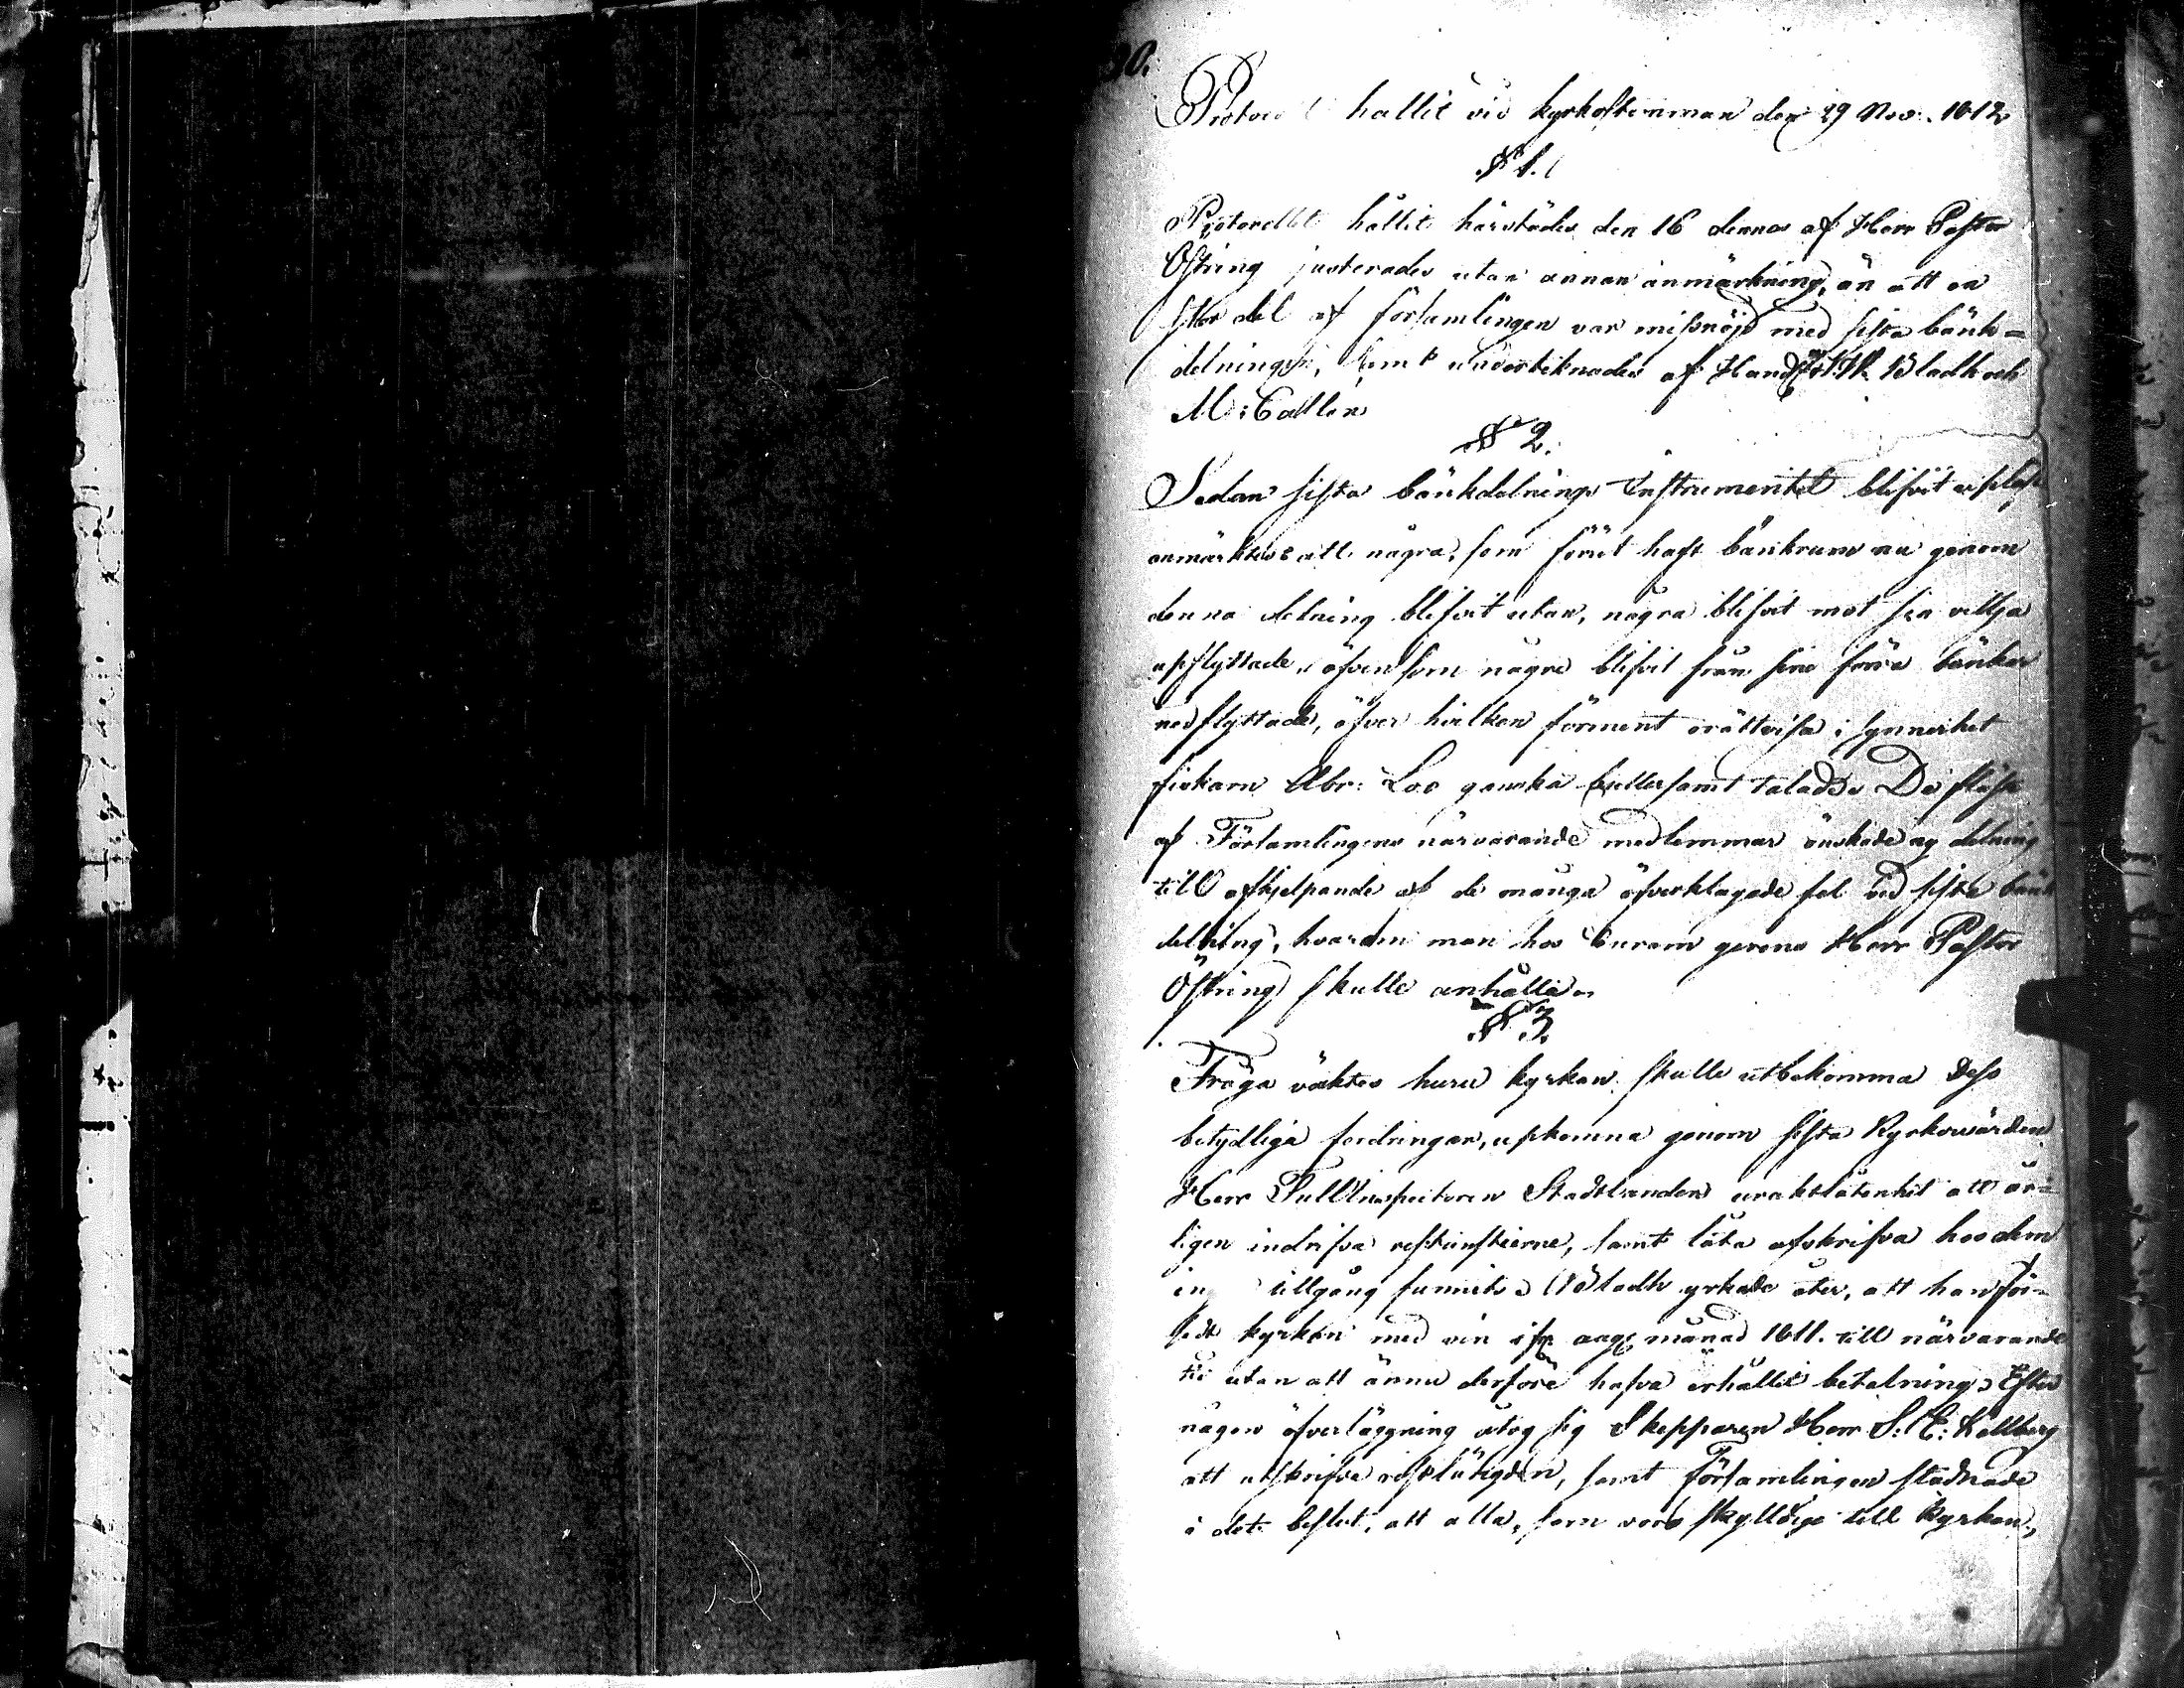 30.
Protocol hållit vid kyrkostemman den 29 Nov. 1812
§ 1.
Protocollet hållit härstädes den 16 dennes af Herr Pastor
Östring justerades utan annan anmärkning, än att en
stor del af församlingen var missnöjd med sista bänk=
delningen, samt undertecknades af Bladh och
M: Callen
§ 2.
Sedan sista bänkdelnings Instrumentet blifvit upläst
anmärktes att några, som förut haft bänkrum nu genom
denna delning blifvit utan, några blifvit mot sin vilja
upflyttade, äfvensom några blifvit från sina förra bänkar
nedflyttade, öfver hvilken förment orättvisa i synnerhet
fiskarn Abr: Loo ganska bullersamt talade. De fläste
af Församlingens närvarande medlemmar önskade ny delning
till afhjelpande af de många öfverklagade fel vid sista bänk
delning, hvarom man hos Curam gerens Herr Pastor
Östring skulle anhålla.
§ 3.
Fråga väktes huru kyrkan skulle utbekomma dess
betydliga fordringar, upkomna genom sista Kyrkovärden
Herr Tullinspectoren Stadtlanders uraktlåtenhet att år=
ligen indrifva restantierne, samt låta afskrifva hos dem
tillgång funnits. Bladh yrkade åter, att han för=
sedt kyrkan med vin ifr. aug. månad 1811. till närvarande
tid utan att ännu derföre hafva erhållit betalning. Efter
någon öfverläggning åtog sig Skepparen Herr S: E: Kallberg
att utskrifva restlängden, samt Församlingen stadnade
i det beslut, att alla, som voro skyldige till kyrkan,